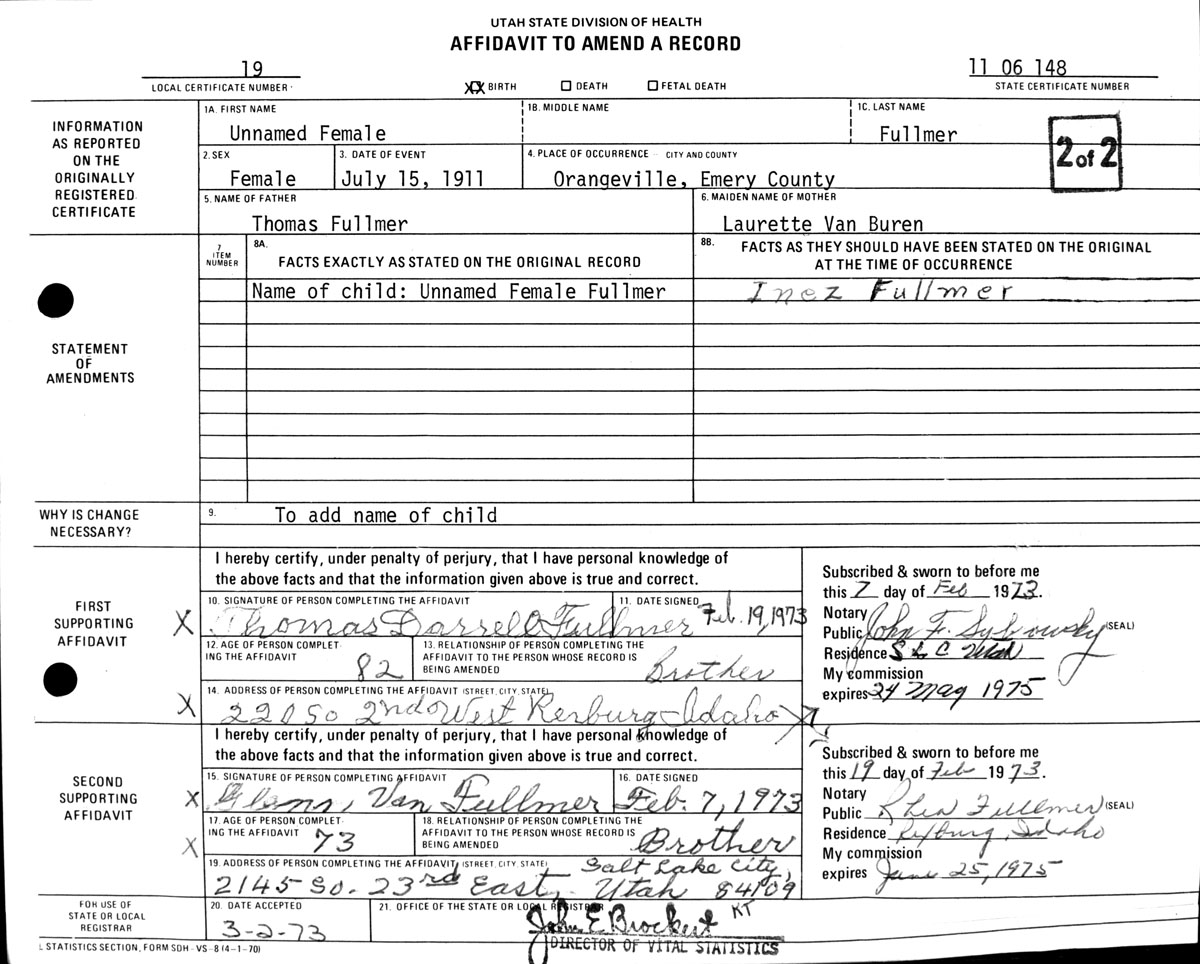 UTAH STATE DIVISION OF HEALTH
AFFIDAVIT TO AMEND A RECORD
19
LOCAL CERTIFICATE NUMBER
XX BIRTH ☐ DEATH ☐ FETAL DEATH
11 06 148
STATE CERTIFICATE NUMBER
INFORMATION
AS REPORTED
ON THE
ORIGINALLY
REGISTERED
CERTIFICATE
1A. FIRST NAME
Unnamed Female
1B. MIDDLE NAME
1C. LAST NAME
Fullmer
2 of 2
2. SEX
Female
3. DATE OF EVENT
July 15, 1911
4. PLACE OF OCCURRENCE - CITY AND COUNTY
Orangeville, Emery County
5. NAME OF FATHER
Thomas Fullmer
6. MAIDEN NAME OF MOTHER
Laurette Van Buren
STATEMENT
OF
AMENDMENTS
7
ITEM
NUMBER
8A.
FACTS EXACTLY AS STATED ON THE ORIGINAL RECORD
8B. FACTS AS THEY SHOULD HAVE BEEN STATED ON THE ORIGINAL
AT THE TIME OF OCCURRENCE
Name of child: Unnamed Female Fullmer
Inez Fullmer
WHY IS CHANGE
NECESSARY?
9. To add name of child
FIRST
SUPPORTING
AFFIDAVIT
I hereby certify, under penalty of perjury, that I have personal knowledge of
the above facts and that the information given above is true and correct.
10. SIGNATURE OF PERSON COMPLETING THE AFFIDAVIT
X Thomas Darrell Fullmer
11. DATE SIGNED
Feb. 19, 1973
12. AGE OF PERSON COMPLET-
ING THE AFFIDAVIT 82
13. RELATIONSHIP OF PERSON COMPLETING THE
AFFIDAVIT TO THE PERSON WHOSE RECORD IS
BEING AMENDED Brother
14. ADDRESS OF PERSON COMPLETING THE AFFIDAVIT (STREET, CITY, STATE)
X 220 So 2nd West Rexburg Idaho
Subscribed & sworn to before me
this 7 day of Feb 1973.
Notary
Public John F. Sybowsky (SEAL)
Residence S L C Utah
My commission
expires 24 May 1975
SECOND
SUPPORTING
AFFIDAVIT
I hereby certify, under penalty of perjury, that I have personal knowledge of
the above facts and that the information given above is true and correct.
15. SIGNATURE OF PERSON COMPLETING THE AFFIDAVIT
X Glenn Van Fullmer
16. DATE SIGNED
Feb. 7, 1973
17. AGE OF PERSON COMPLET-
ING THE AFFIDAVIT 73
X
18. RELATIONSHIP OF PERSON COMPLETING THE
AFFIDAVIT TO THE PERSON WHOSE RECORD IS
BEING AMENDED Brother
19. ADDRESS OF PERSON COMPLETING THE AFFIDAVIT (STREET, CITY, STATE)
2145 So. 23rd East, Salt Lake City, Utah 84109
Subscribed & sworn to before me
this 19 day of Feb 1973.
Notary
Public Rhea Fullmer (SEAL)
Residence Rexburg, Idaho
My commission
expires June 25, 1975
FOR USE OF
STATE OR LOCAL
REGISTRAR
20. DATE ACCEPTED
3-2-73
21. OFFICE OF THE STATE OR LOCAL REGISTRAR
John E Brockert KT
DIRECTOR OF VITAL STATISTICS
L STATISTICS SECTION, FORM SDH - VS - 8 (4-1-70)